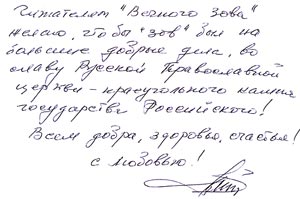 Читателям "Вечного зова"
желаю, что бы "зов" был на
большие добрые дела, во
славу Русской Православной
церкви - краеугольного камня
государства Российского!
Всем добра, здоровья, счастья!
С любовью!